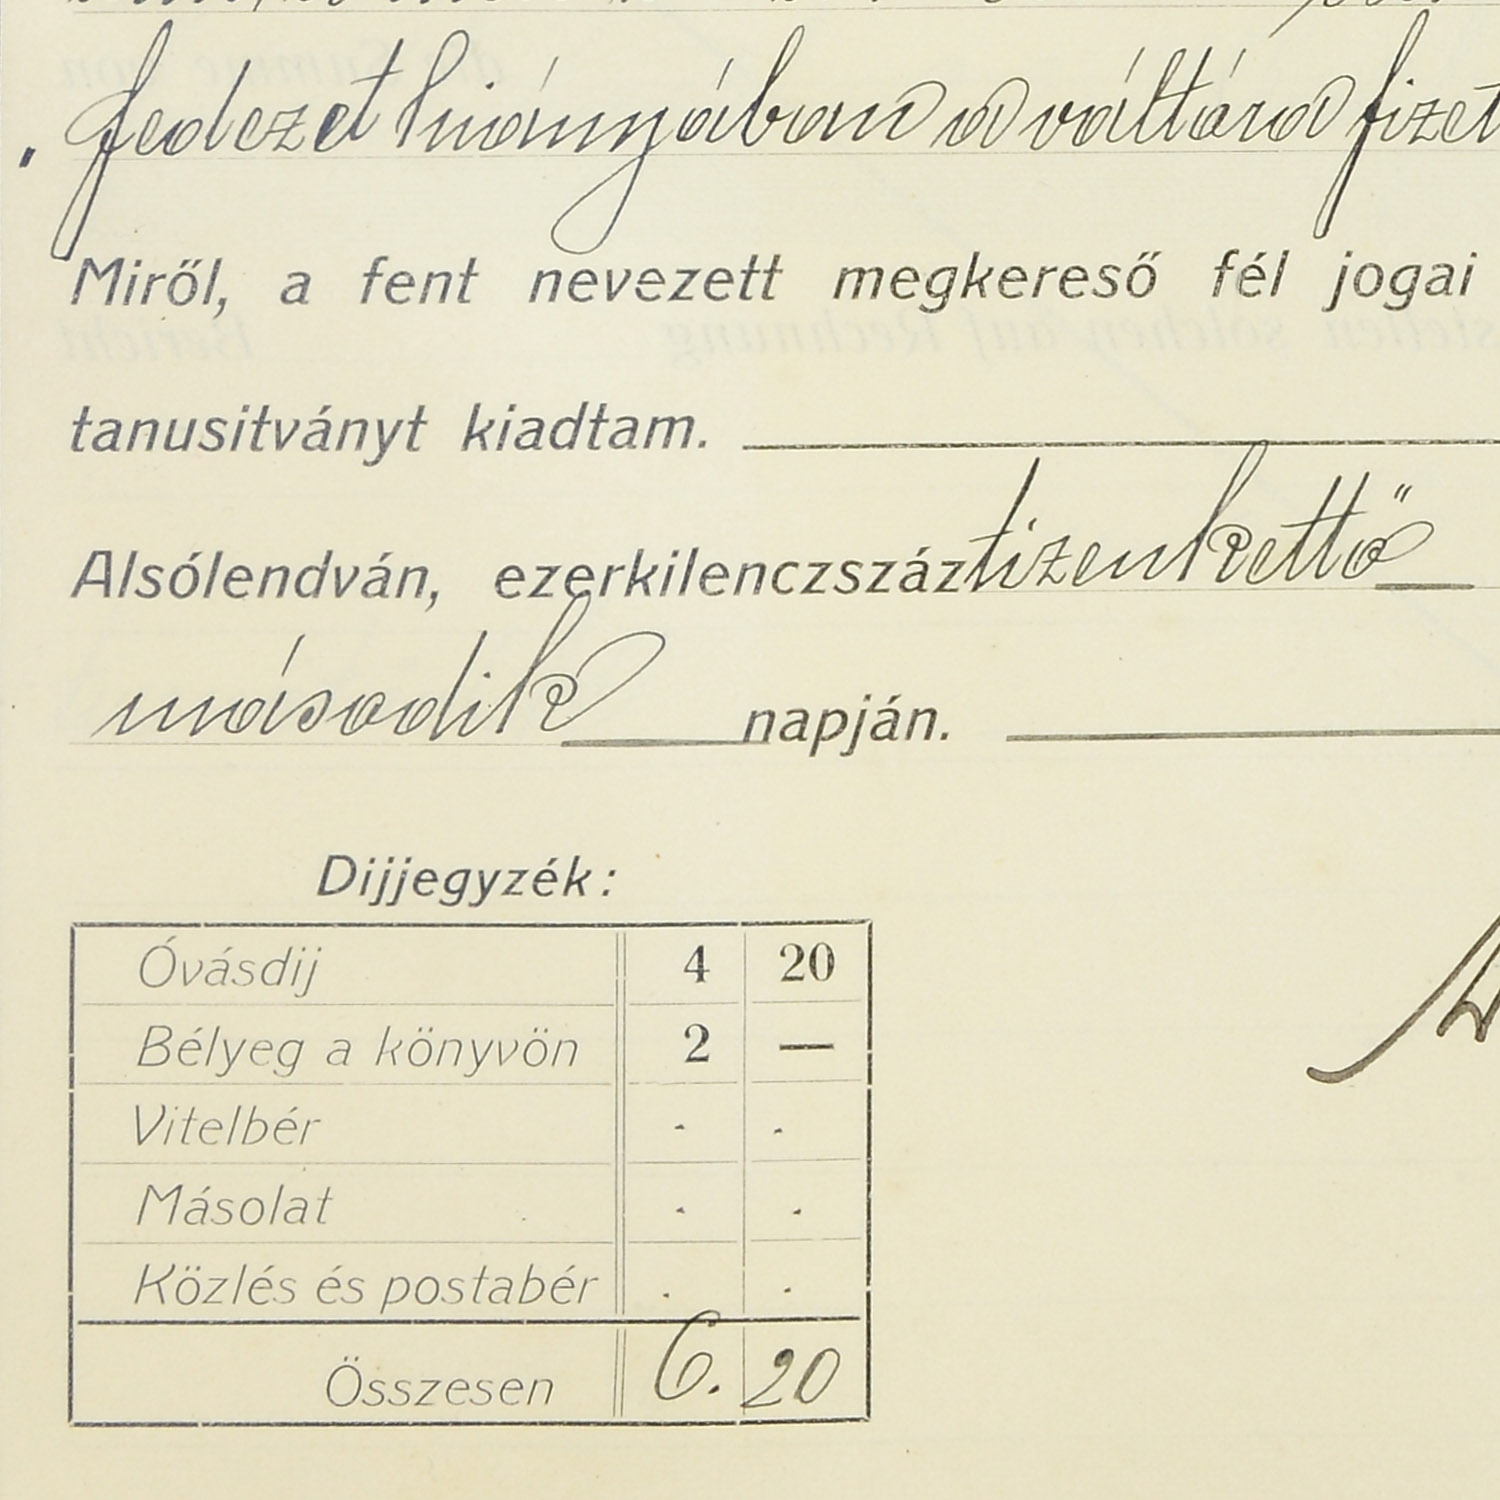 fedezet hiányában a váltóra fizet
Miről, a fent nevezett megkereső fél jogai
tanusitványt kiadtam.
Alsólendván, ezerkilenczszáztizenkettő
második napján.
Dijjegyzék:
Óvásdij 4 20
Bélyeg a könyvön 2 —
Vitelbér . .
Másolat . .
Közlés és postabér . .
Összesen 6. 20